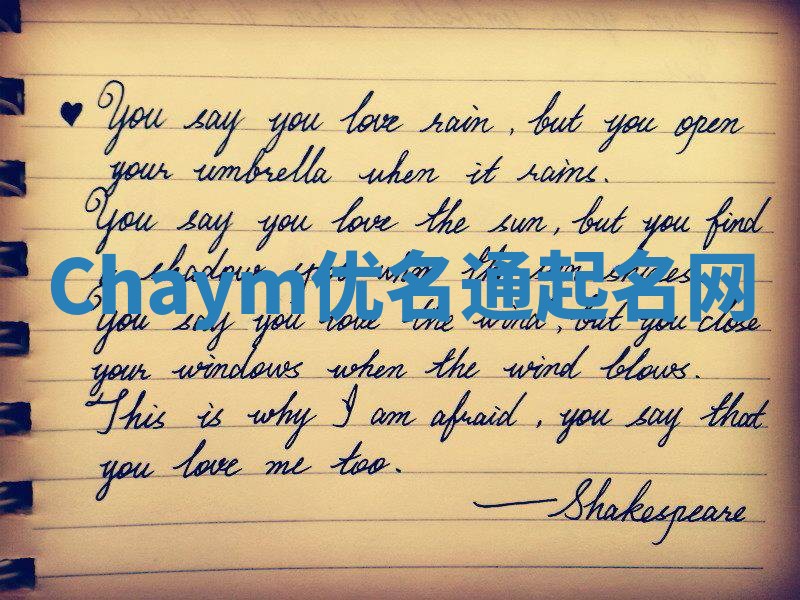 ♥ You say you love rain, but you open
your umbrella when it rains.
You say you love the sun, but you find
a shadow spot when the sun shines.
Chaym优名通起名网
You say you love the wind, but you close
your windows when the wind blows.
This is why I am afraid, you say that
you love me too.
—Shakespeare